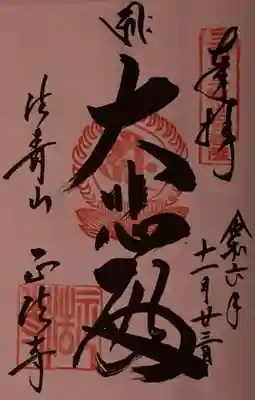 奉拝
令和六年
十一月廿三日
大悲殿
法寿山
正法寺